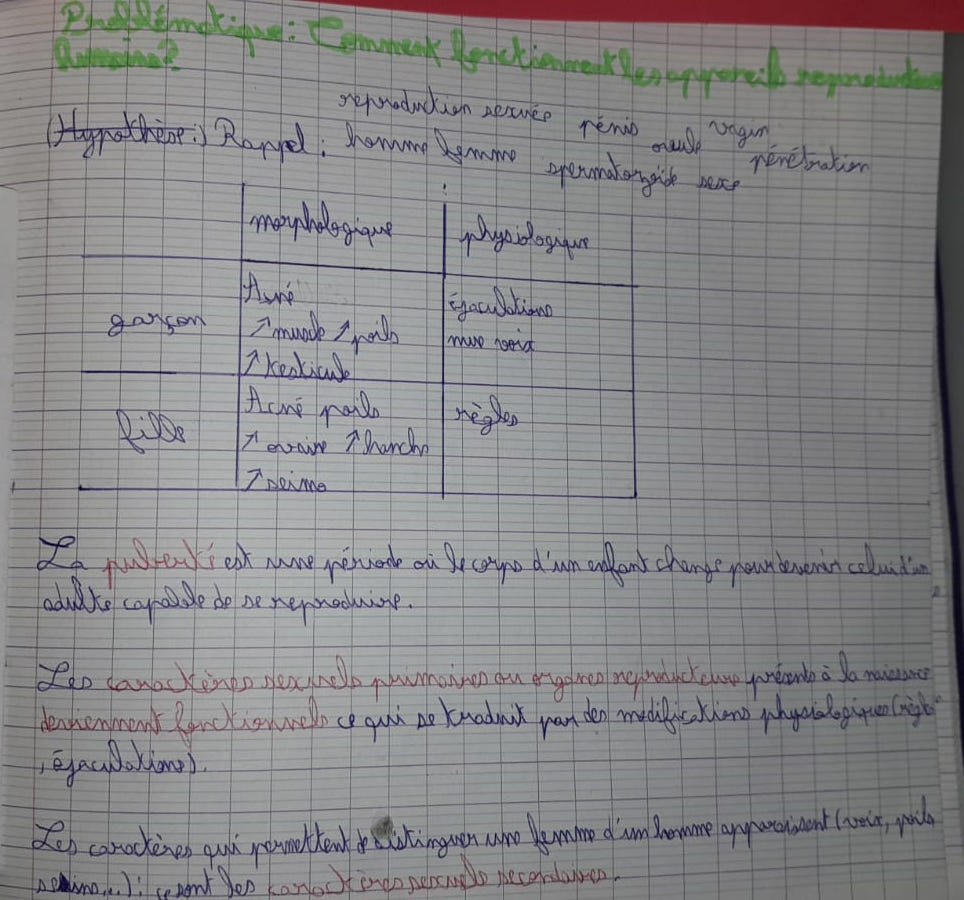 Problématique : Comment fonctionnent les appareils reproducteurs
humains?
reproduction sexuée pénis ovule vagin
(Hypothèse:) Rappel : homme femme spermatozoïde sexe pénétration
morphologique physiologique
garçon
Acné
↗ muscle ↗ poils
↗ testicule
éjaculations
mue voix
fille
Acné poils
↗ ovaire ↗ hanche
↗ seins
règles
La puberté est une période où le corps d'un enfant change pour devenir celui d'un
adulte capable de se reproduire.
Les caractères sexuels primaires ou organes reproducteurs présents à la naissance
deviennent fonctionnels ce qui se traduit par des modifications physiologiques (règles
, éjaculations).
Les caractères qui permettent de distinguer une femme d'un homme apparaissent (voix, poils
seins,..) : ce sont les caractères sexuels secondaires.